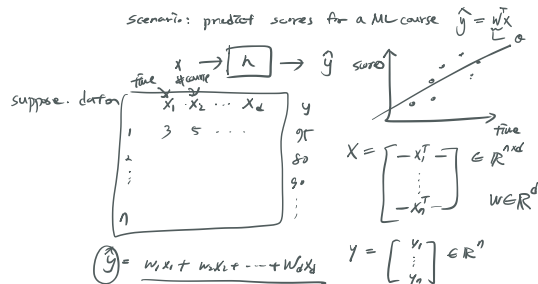 scenario: predict scores for a ML course ŷ = wᵀx
θ
x → h → ŷ
time #course
score
time
suppose. data
x₁ x₂ ... x_d y
1 3 5 ... 95
2 80
⋮ 90
n ⋮
X = [ —x₁ᵀ— ⋮ —xₙᵀ— ] ∈ ℝⁿˣᵈ
w∈ℝᵈ
ŷ = w₁x₁ + w₂x₂ + ---- + w_d x_d
Y = [ y₁ ⋮ yₙ ] ∈ ℝⁿ